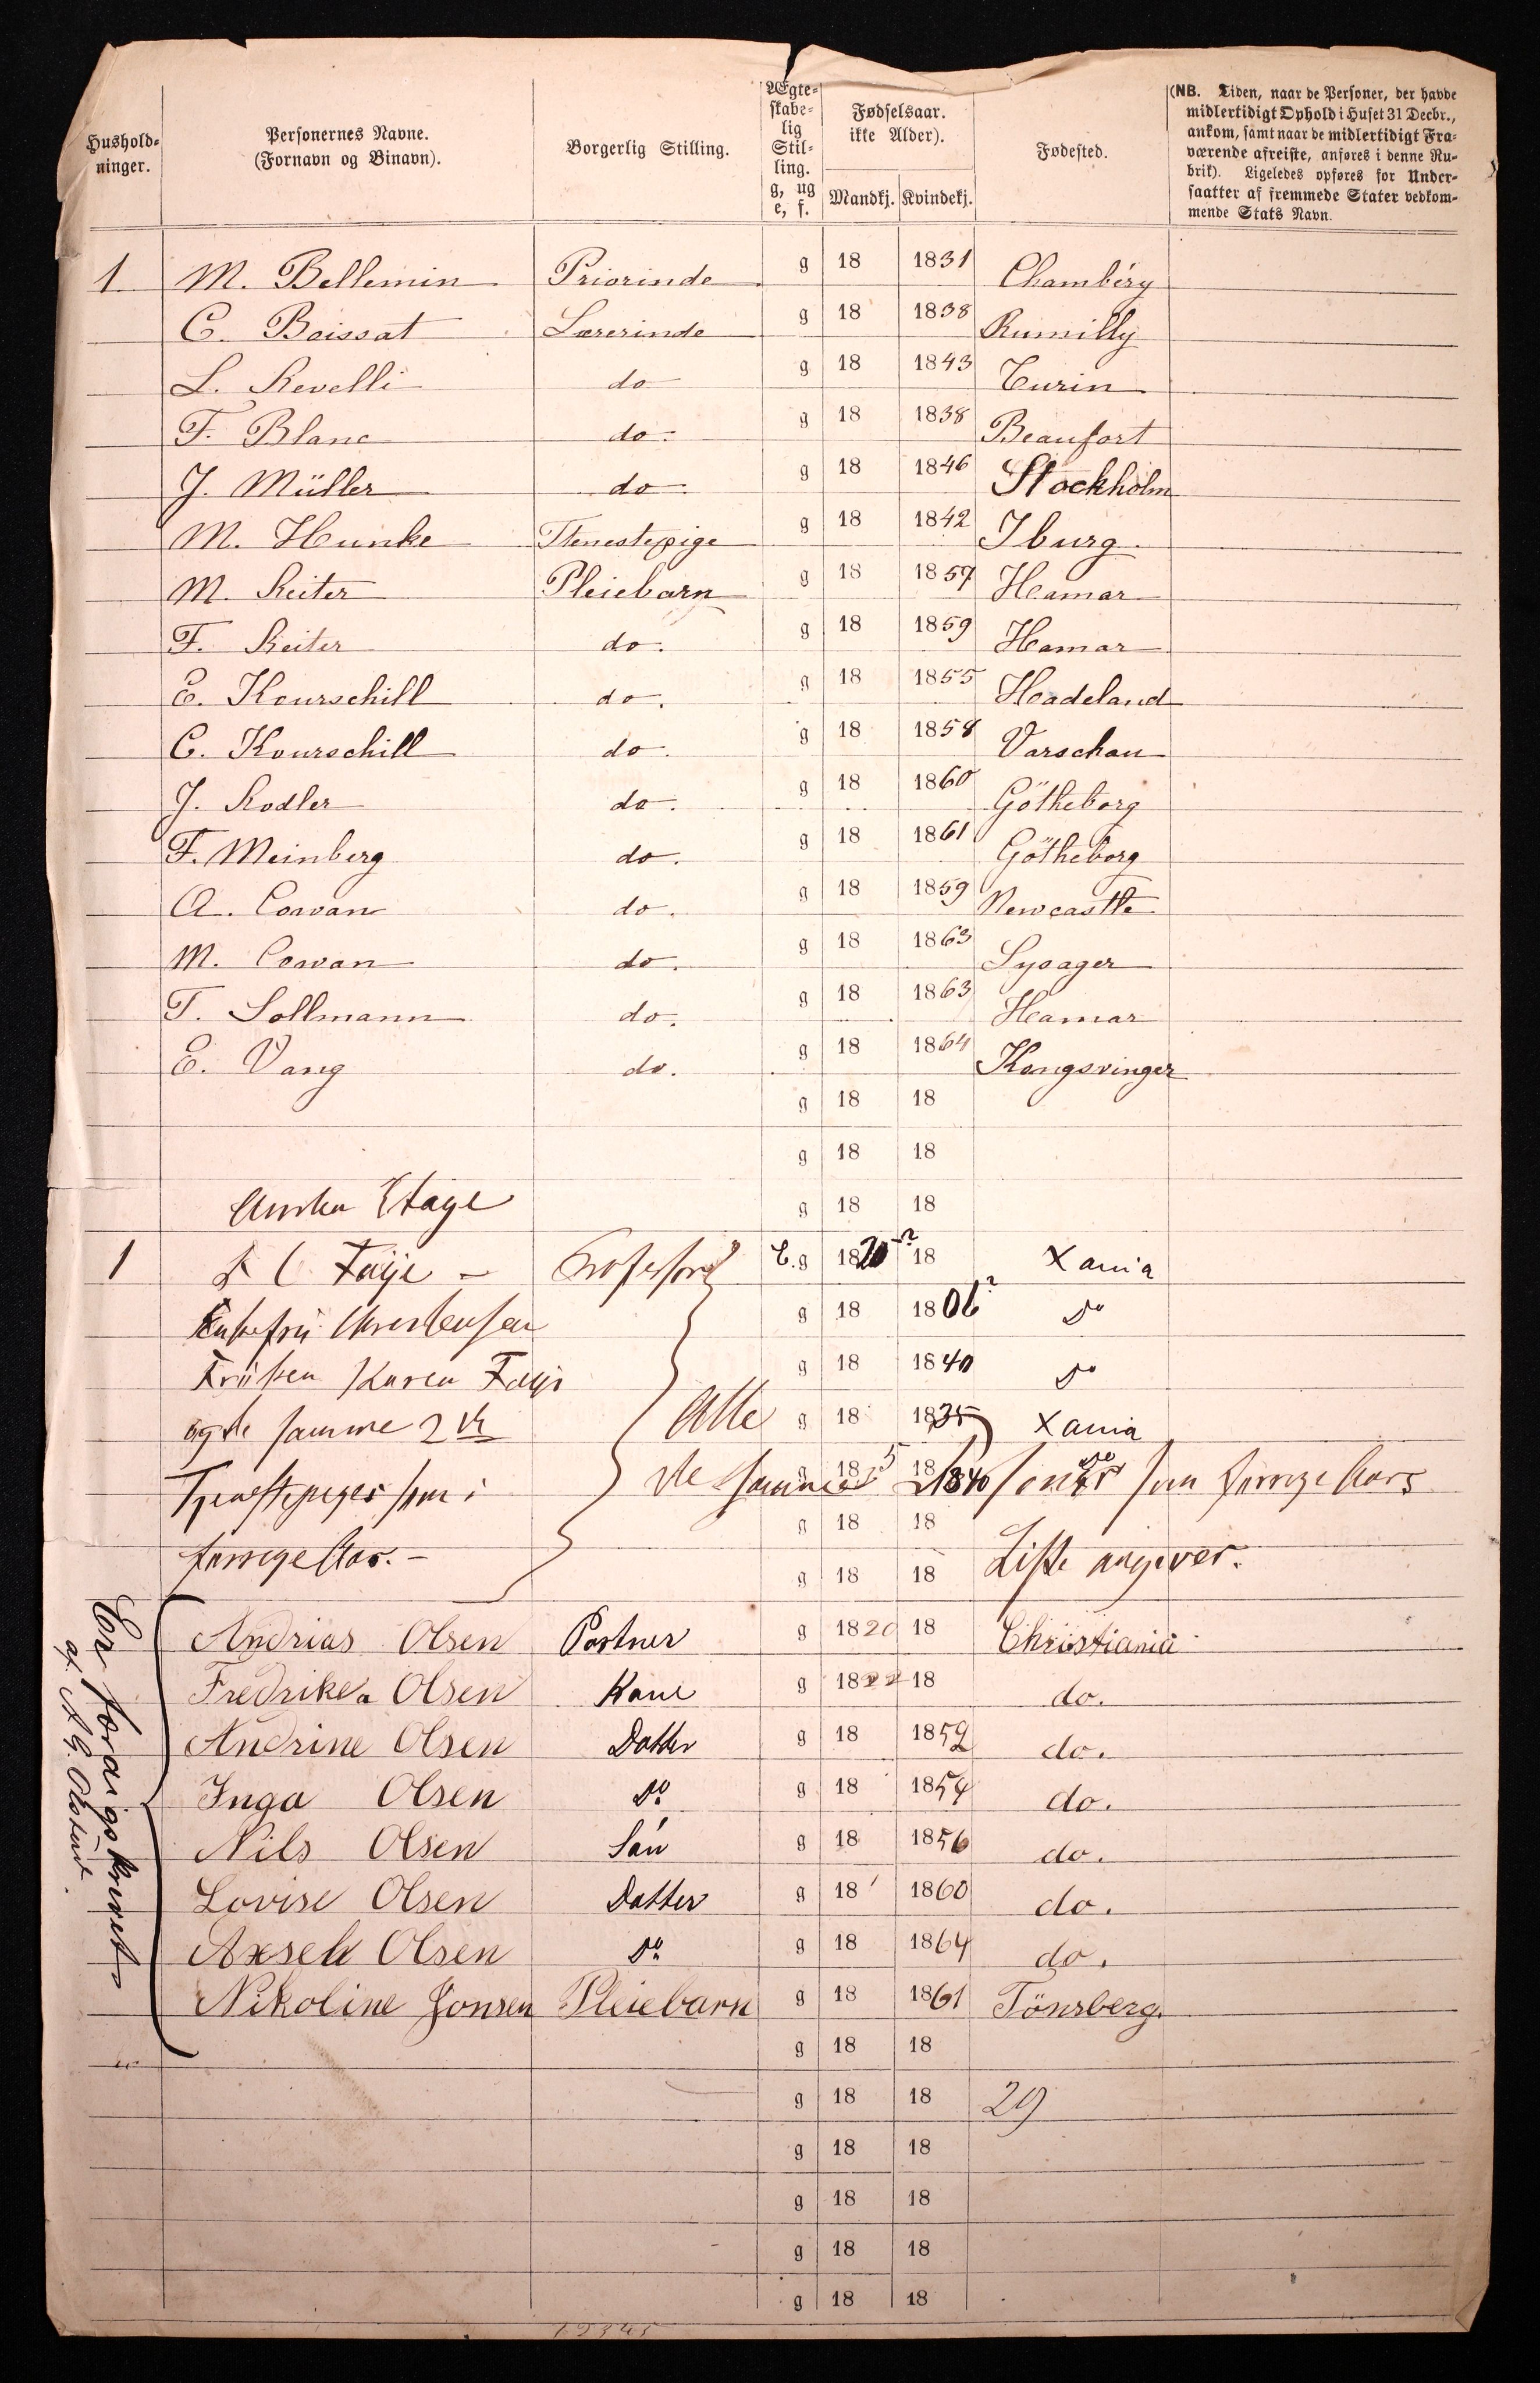 Hushold-
ninger.
Personernes Navne.
(Fornavn og Binavn).
Borgerlig Stilling.
Ægte-
skabe-
lig
Stil-
ling.
g, ug
e, f.
Fødselsaar.
ikke Alder).
Mandkj. Kvindekj.
Fødested.
(NB. Tiden, naar de Personer, der havde
midlertidigt Ophold i Huset 31 Decbr.,
ankom, samt naar de midlertidigt Fra-
værende afreiste, anføres i denne Ru-
brik). Ligeledes opføres for Under-
saatter af fremmede Stater vedkom-
mende Stats Navn.
1 M. Bellemin Priorinde g 18 1831 Chambéry
C. Boissat Lærerinde g 18 1838 Rumilly
L. Revelli do g 18 1843 Turin
F. Blanc do. g 18 1838 Beaufort
J. Müller do g 18 1846 Stockholm
M. Hunke Tienestepige g 18 1842 Iburg
M. Reiter Pleiebarn g 18 1857 Hamar
F. Reiter do. g 18 1859 Hamar
E. Kourschill do. g 18 1855 Hadeland
C. Kourschill do. g 18 1858 Varschau
J. Rodler do. g 18 1860 Götheborg
F. Meinberg do. g 18 1861 Götheborg
A. Cowan do. g 18 1859 Newcastle
M. Cowan do. g 18 1863 Lysager
T. Sollmann do. g 18 1863 Hamar
E. Vang do. g 18 1864 Kongsvinger
g 18 18
g 18 18
Anden Etage g 18 18
1 Faye - Professor E. g 1820-? 18 Xania
Enkefru Christensen g 18 1806? Do
Frøken Karen Faye g 18 1840 Do
og de samme 2de Alle g 18 1835 Xania
Tjenestepiger som i de samme 5 g 18 1840 som forrige Aars
forrige Aar. - g 18 18
Liste angiver. g 18 18
Andrias Olsen Portner g 1820 18 Christiania
Fredrikea Olsen Kone g 1822 18 do.
Andrine Olsen Datter g 18 1852 do.
Inga Olsen Do g 18 1854 do.
Nils Olsen Søn g 18 1856 do.
Lovise Olsen Datter g 18 1860 do.
Axsele Olsen Do g 18 1864 do.
Nikoline Jonsen Pleiebarn g 18 1861 Tönsberg.
Er
af
g 18 18
g 18 18 29
g 18 18
g 18 18
g 18 18
g 18 18
12345